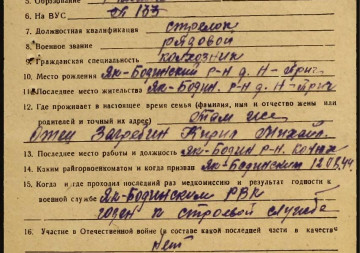 5. Образование
6. На ВУС № 133
7. Должностная квалификация стрелок
8. Военное звание рядовой
9. Гражданская специальность колхозник
10. Место рождения Як-Бодинский р-н д. Н-
11. Последнее место жительства Як-Бодин. р-н д. Н-
12. Где проживает в настоящее время семья (фамилия, имя и отчество жены или
родителей и точный их адрес) Там же
Отец Загребин Кирил Михайл.
13. Последнее место работы и должность Як-Бодин р-н. колхоз
14. Каким райгорвоенкоматом и когда призван Як-Бодинским 12.08.44
15. Когда и где проходил последний раз медкомиссию и результат годности к
военной службе Як-Бодинским РВК
годен к строевой службе
16. Участие в Отечественной войне (в составе какой последней части в качестве
нет